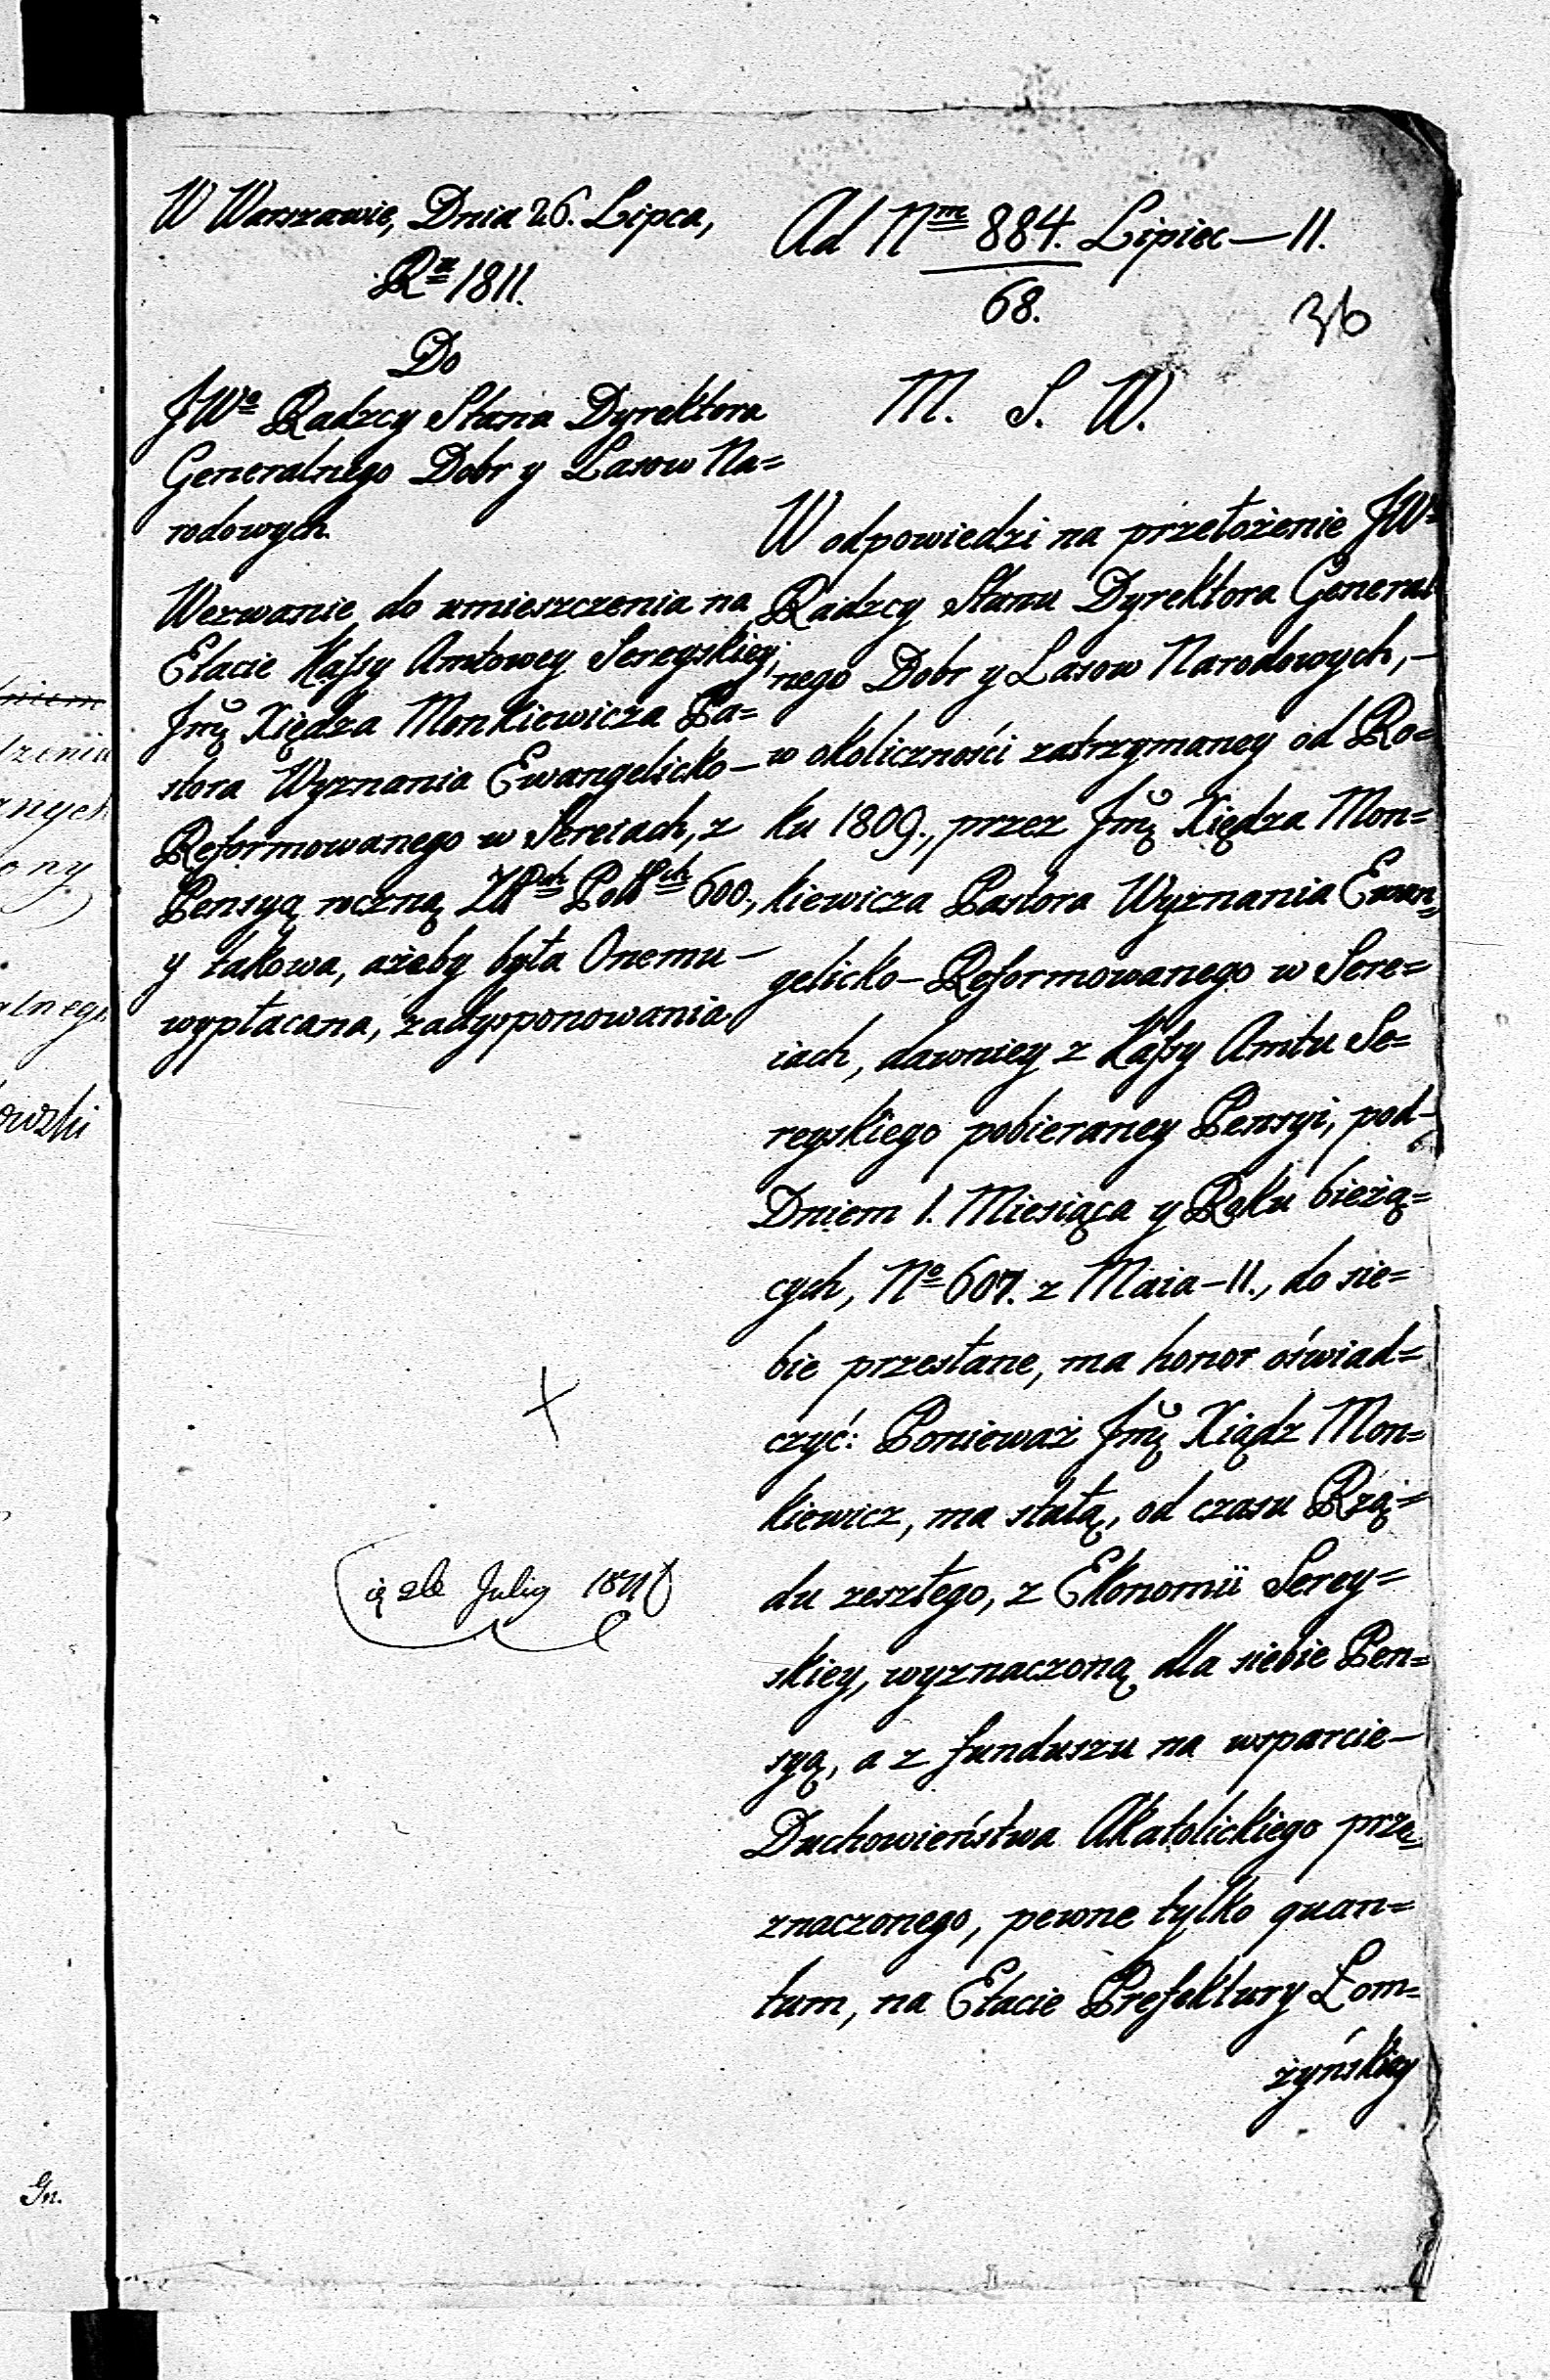 W Warszawie, Dnia 26. Lipca,
Ra 1811.
Do
JWo Radzcy Stanu Dyrektora
Generalnego Dobr y Lasow Na=
rodowych.
Wezwanie do umieszczenia na
Etacie Kassy Amtowey Sereyskiey,
Jmę Xiędza Monkiewicza Pa=
stora Wyznania Ewangelicko—
Reformowanego w Sereiach, z
Pensyą roczną Złłtch Pollsch 600.,
y takowa, ażeby była Onemu—
wypłacana, zadysponowania.
ię 26 July 1811
Ad Nm 884. Lipiec—11.
68.
36
M. S. W.
W odpowiedzi na przełożenie JWo
Radzcy Stanu Dyrektora General
nego Dobr y Lasow Narodowych,—
w okoliczności zatrzymaney od Ro=
ku 1809., przez Jmę Xiędza Mon=
kiewicza Pastora Wyznania Ewan=
gelicko—Reformowanego w Sere=
iach, dawniey z Kassy Amtu Se=
reyskiego pobieraney Pensyi, pod—
Dniem 1. Miesiąca y Roku bieżą=
cych, No 607. z Maia—11., do sie=
bie przesłane, ma honor oświad=
czyć: Ponieważ Jmę Xiądz Mon=
kiewicz, ma stałą, od czasu Rzą=
du zeszłego, z Ekonomii Serey=
skiey, wyznaczoną dla siebie Pen=
syą, a z funduszu na wsparcie—
Duchowieństwa Akatolickiego prze=
znaczonego, pewne tylko quan=
tum, na Etacie Prefektury Łom=
żyńskiey
niem
dzenia
nych
ony
alnego
owski
Gn.